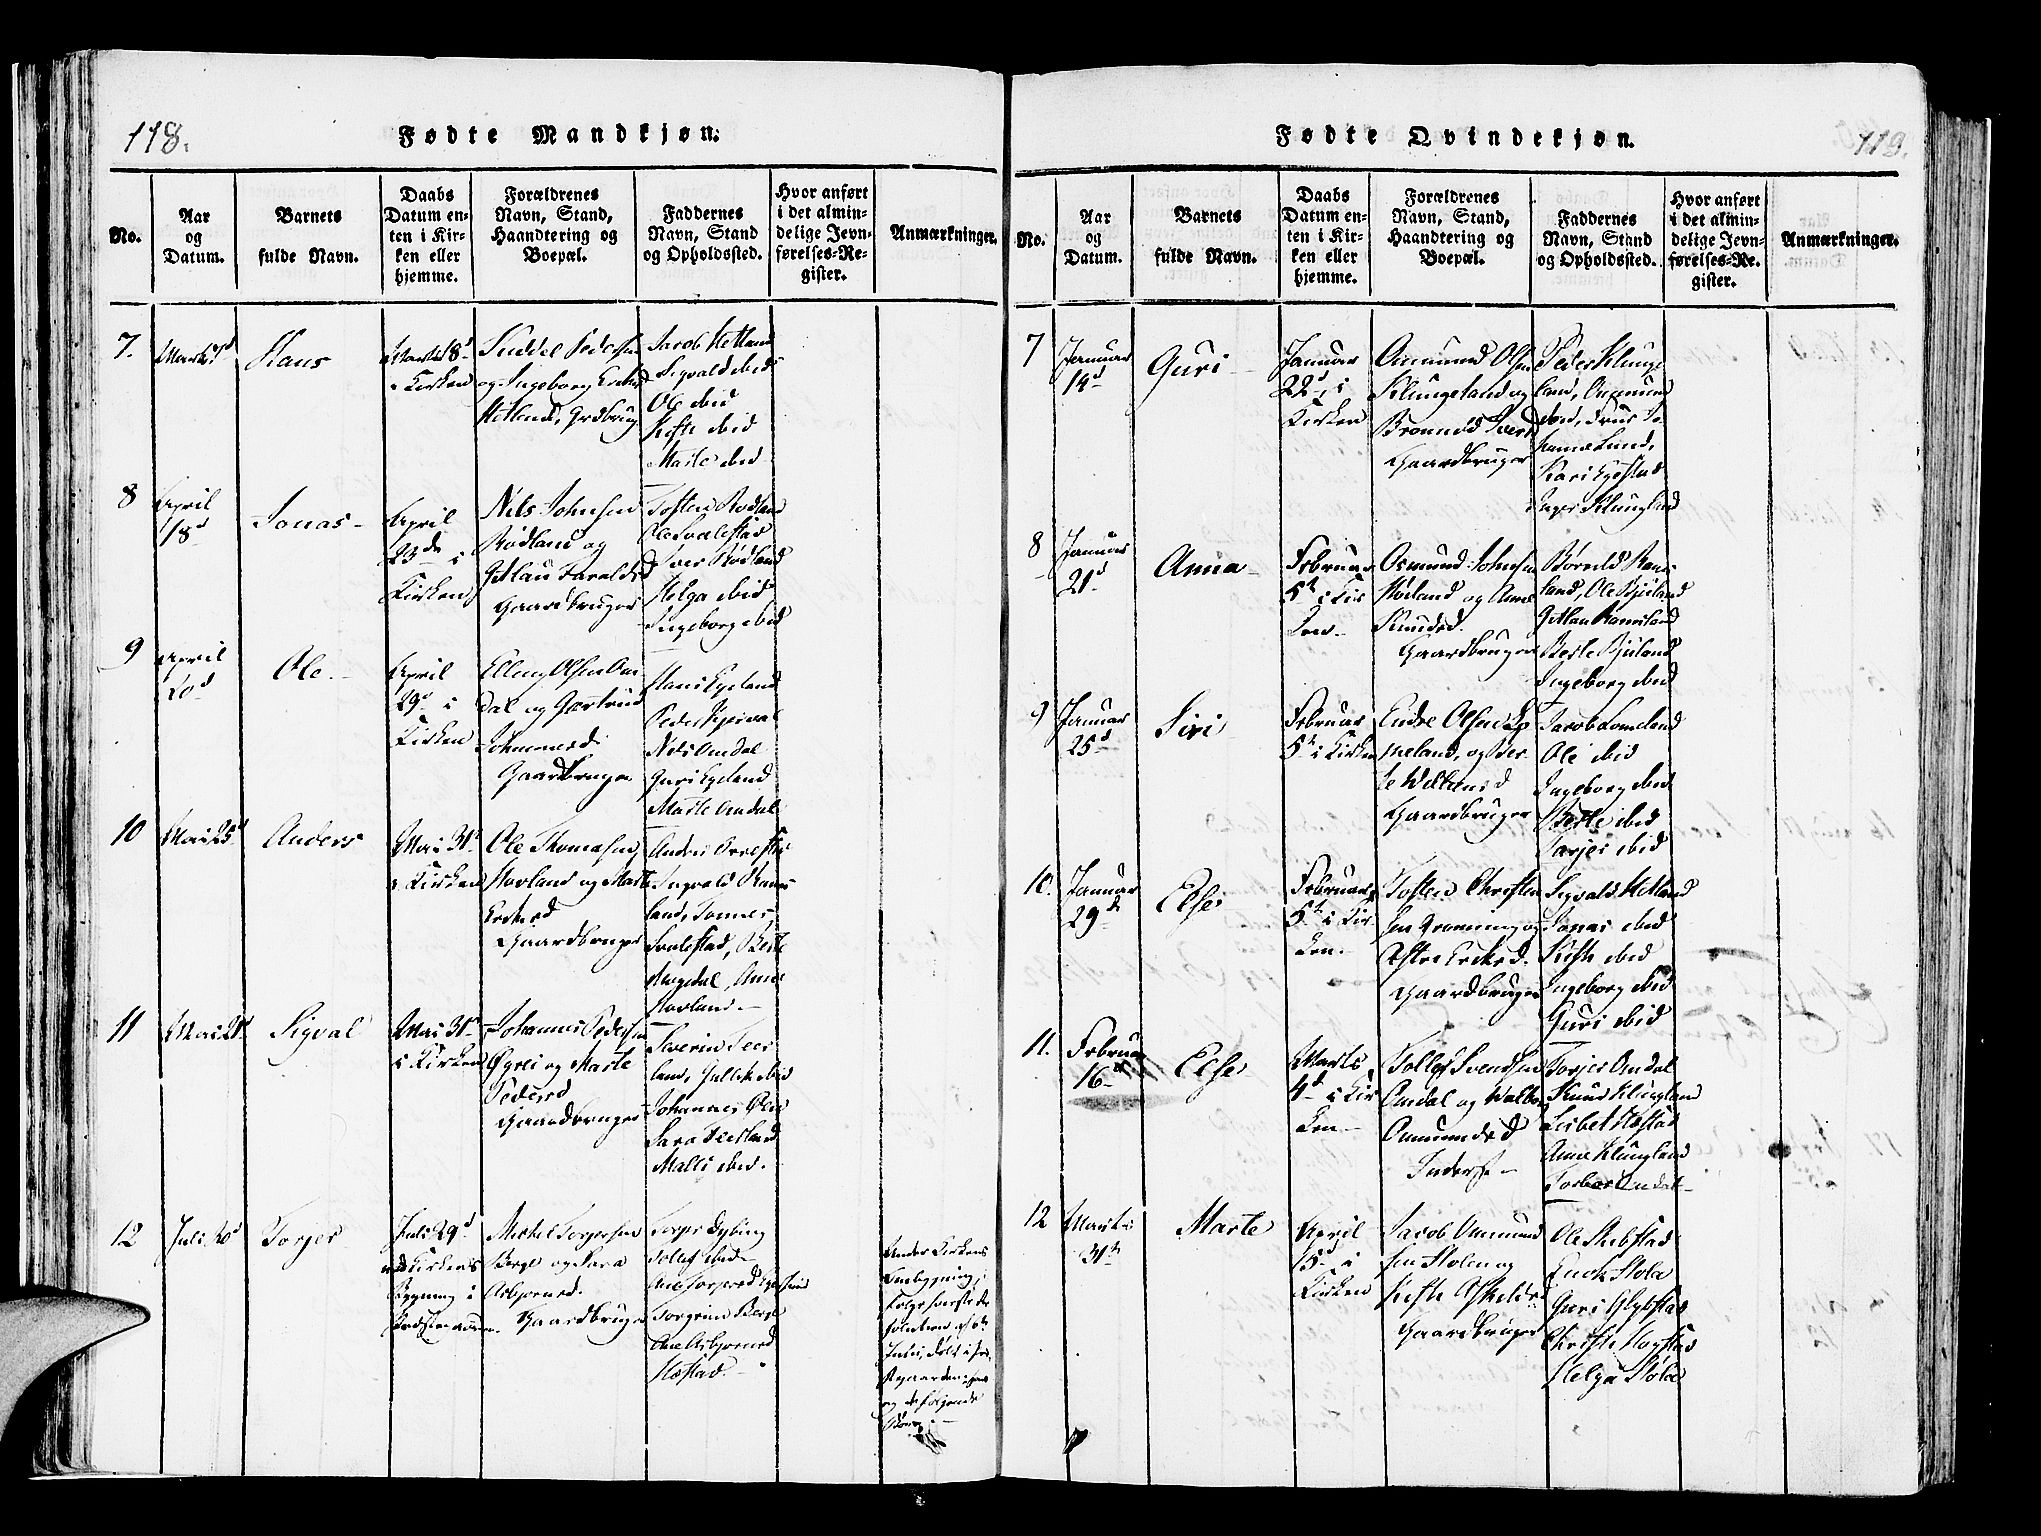 118.
Fødte Mandkjøn.
No.
Aar
og
Datum.
Barnets
fulde Navn.
Daabs
Datum en-
ten i Kir-
ken eller
hjemme.
Forældrenes
Navn, Stand,
Haandtering og
Boepæl.
Faddernes
Navn, Stand
og Opholdssted.
Hvor anført
i det almin-
delige Jevn-
førelses-Re-
gister.
Anmærkninger.
7.
Hans
Marts 8d
i Kirken
Suddel Peders
og Ingeborg
Hetland, Grdbrug
Jacob Hetland
Sigvald ibid
Ole ibid
ibid
Marte ibid
8
April
18d
Jonas
April
23de i
Kirken
Nils Johnsen
Rødland og
Gaardbruger
Tosten Rødland
Ole Svalestad
Iver Rødland
Helga ibid
Ingeborg ibid
9
April
20d
Ole
April
29d i
Kirken
Elling Olsen Om-
dal og Giertrud
Johannesd
Gaardbruger
Hans Egeland
Peder
Nils Omdal
Guri Egeland
Marte Omdal
10
Mai 25d
Anders
Mai 31t
i Kirken
Ole Thomasen
Hovland og Marte
Gaardbruger
Anders
Ingvald Rams-
land, Tonnes
Svalestad, Berte
Ane
Hovland
11
Sigval
Mai 31t
i Kirken
Johannes Peders
og Marte
Pedersd
Gaardbruger
Severin Tees-
land, ibid
Johannes
Sara Teesland
Malli ibid.
12
Juli 20d
Torjer
Juli 29d
Kirkens
Bygning i
Michel Torjersen
Berge og Sara
Asbjornsd.
Gaardbruger
Torjer Dybing
Tollef ibid
Ane Torjersd
Torgrim Berge
Ane Asbjornsd
Hæstad.
Under Kirkens
Ombygning,
og de følgende
Børn
119.
Fødte Qvindekjøn.
No.
Aar
og
Datum.
Barnets
fulde Navn.
Daabs
Datum en-
ten i Kir-
ken eller
hjemme.
Forældrenes
Navn, Stand,
Haandtering og
Boepæl.
Faddernes
Navn, Stand
og Opholdssted.
Hvor anført
i det almin-
delige Jevn-
førelses-Re-
gister.
Anmærkninger.
7
Januar
14d
Guri
Januar
22d i
Kirken
Ommund Olsen
Klungeland og
Gaardbruger
Peder Klunge-
land, Ommund
ibid,
Lund,
Kari Egestad
Inger Klungland
8
Januar
21d
Anna
Februar
5t i Kir-
ken
Osmund Johnsen
Høiland og Anne
Knudsd.
Gaardbruger
Børild Rams-
land, Ole Bjuland
Ramsland
Berte Bjuland
Ingeborg ibid
9
Januar
25d
Siri
Februar
5t i Kirken
Endre Olsen Lo-
meland, og Ber-
te Willumsd
Gaardbruger
Jacob Lomeland
Ole ibid
Ingeborg ibid
Berte ibid
Tarjei ibid
10.
Januar
29d
Else
Februar
5t i Kir-
ken.
Tosten Christen-
sen Gronning og
Gaardbruger
Sigvald Hetland
Jonas ibid
ibid
Ingeborg ibid
Guri ibid
11.
Februar
16d
Else
Marts
4d i Kir-
ken
Tollef Svendsen
Omdal og Walbor
Ommundsd
Inderst
Torjer Omdal
Knud Klungland
Lisbet Hæstad
Anne Klungland
Torbor Omdal
12
Marts
31t
Marte
April
15d i
Kirken
Jacob Ommund-
sen Stolen og
Gaardbruger
Ole Skibstad
Enok Støle
Guri Glybstad
Christi Hogstad
Helga Støle